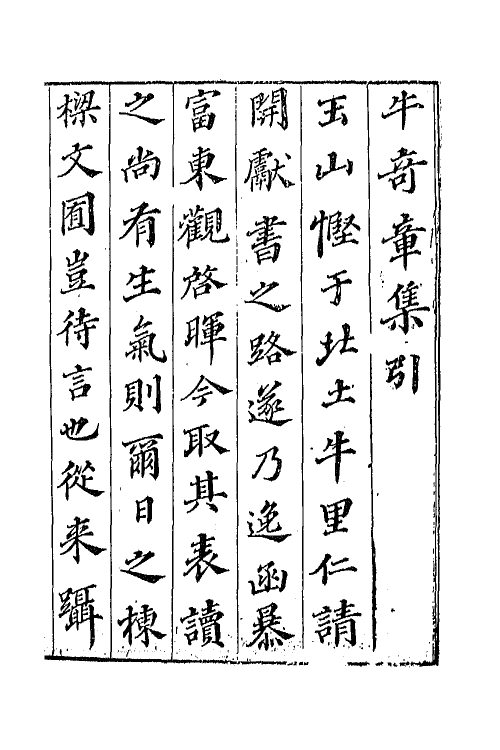 牛奇章集引
玉山慳于北土牛里仁請
開獻書之路遂乃逸函暴
富東觀啓暉今取其表讀
之尚有生氣則爾日之棟
樑文囿豈待言也從来躡